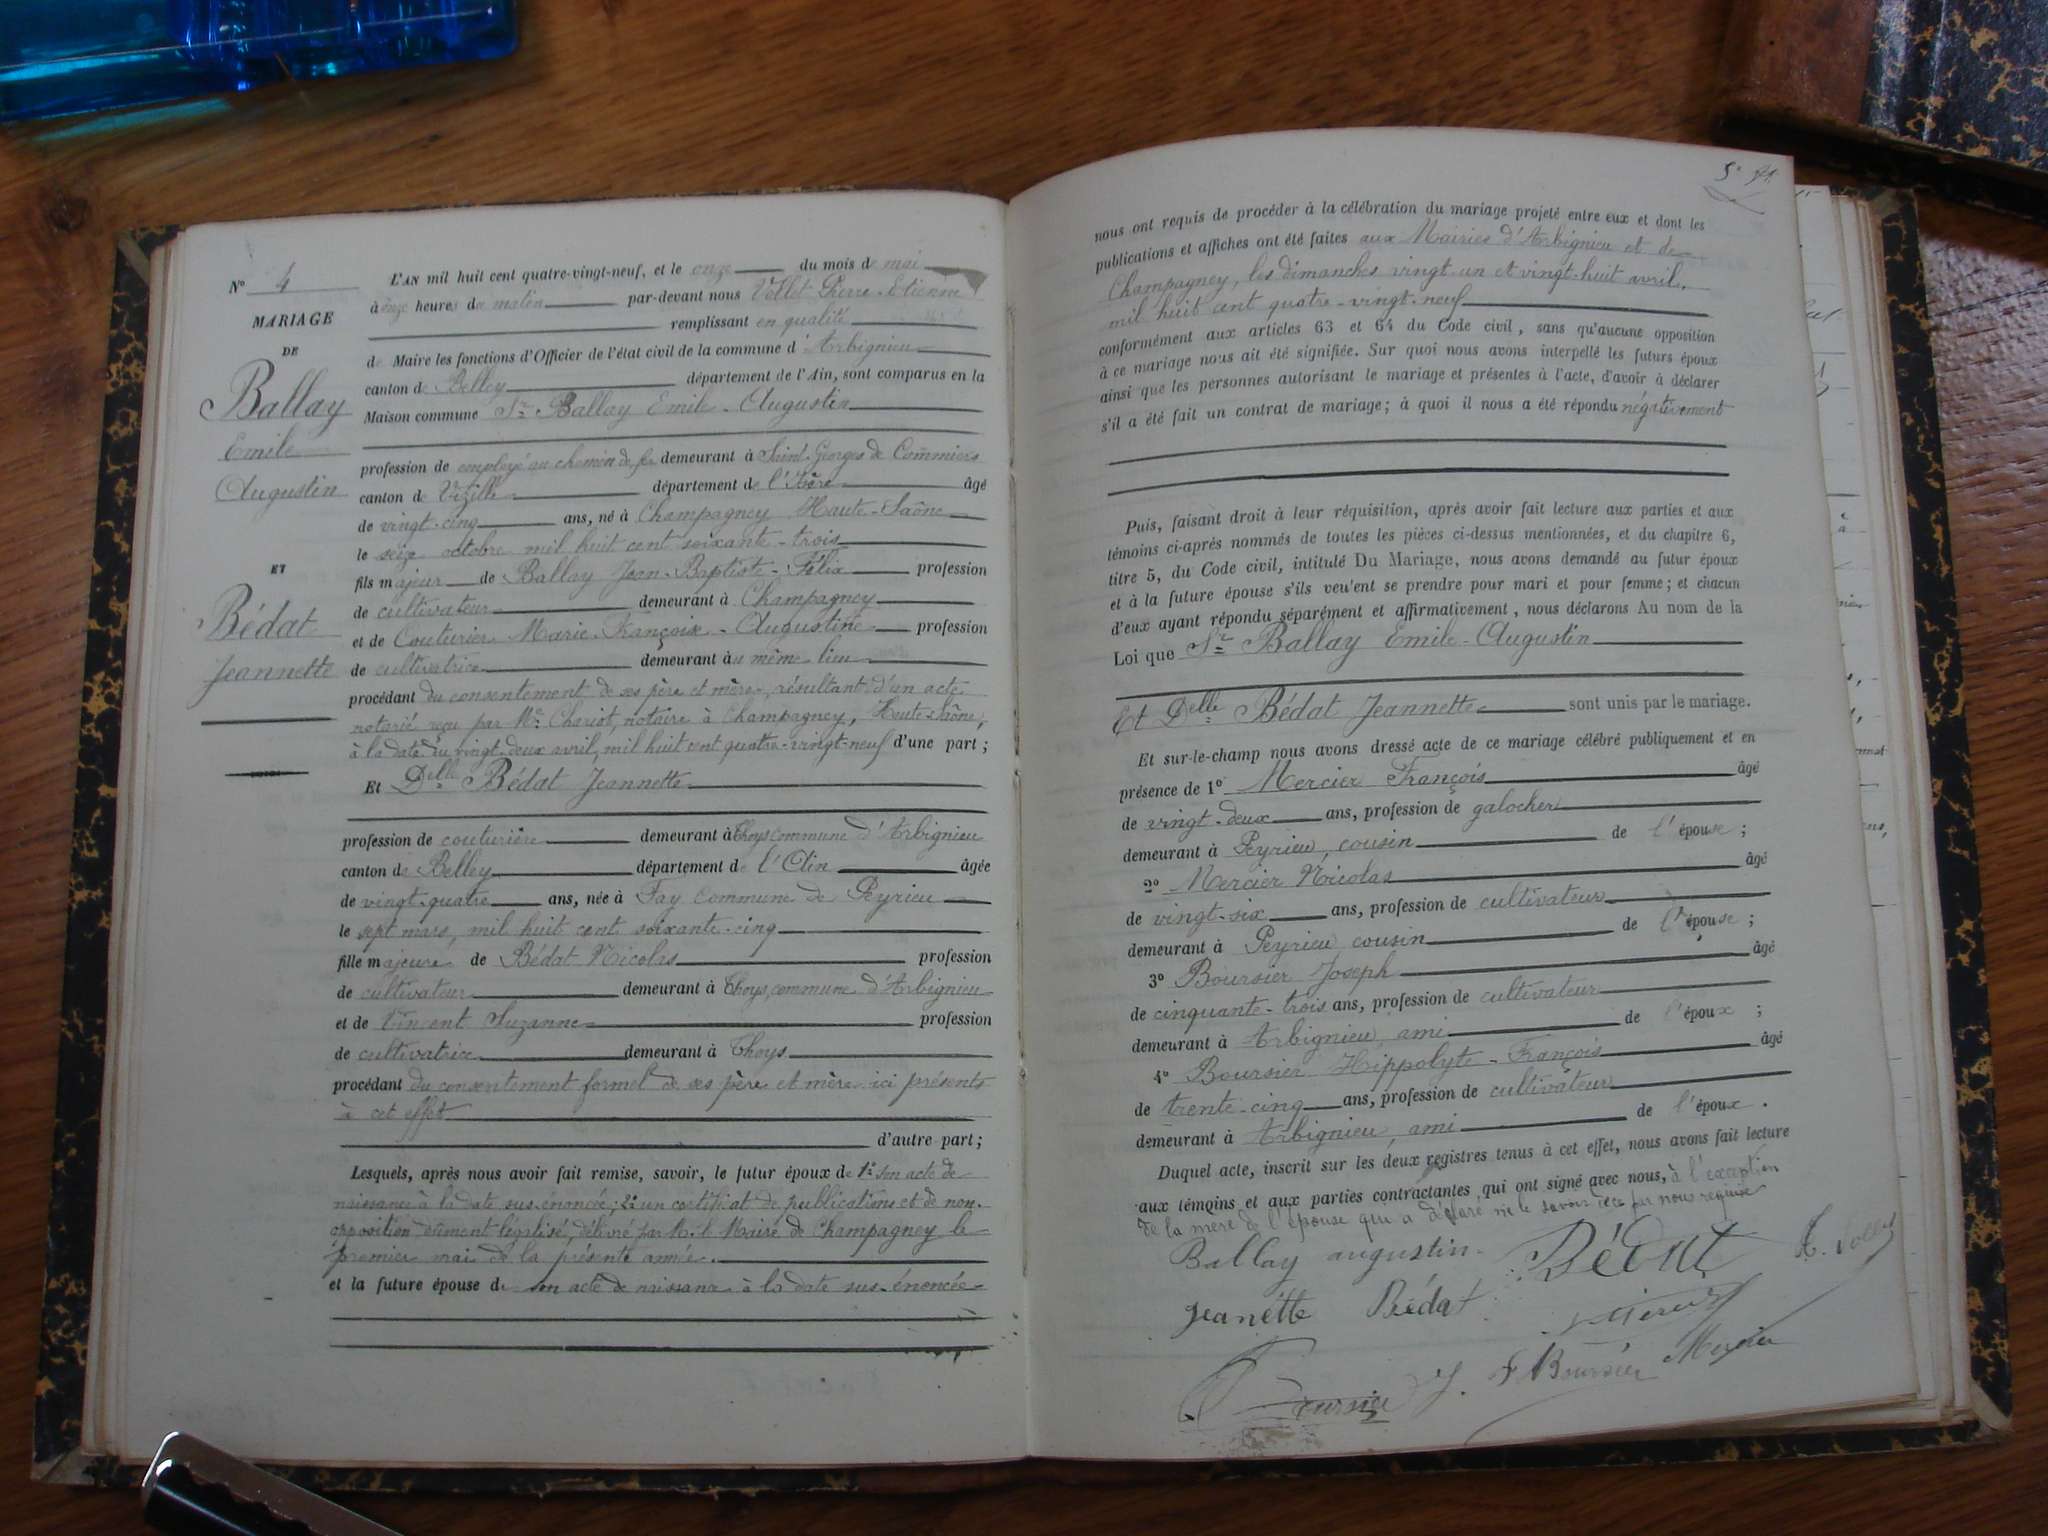 N° 4
MARIAGE
DE
Ballay
Emile
Augustin
ET
Bédat
Jeannette
L'AN mil huit cent quatre-vingt-neuf, et le onze du mois de mai
à onze heures du matin par-devant nous Vollet Pierre-Etienne
remplissant en qualité
de Maire les fonctions d'Officier de l'état civil de la commune d'Arbignieu
canton de Belley département de l'Ain, sont comparus en la
Maison commune Sr Ballay Emile-Augustin
profession de employé au chemin de fer demeurant à Saint-Georges de Commiers
canton de Vizille département de l'Isère âgé
de vingt-cinq ans, né à Champagney Haute-Saône
le seize octobre mil huit cent soixante-trois
fils majeur de Ballay Jean-Baptiste-Félix profession
de cultivateur demeurant à Champagney
et de Couturier Marie-Françoise-Augustine profession
de cultivatrice demeurant au même lieu
procédant du consentement de ses père et mère, résultant d'un acte
notarié reçu par Me Chariot, notaire à Champagney, Haute-Saône,
à la date du vingt-deux avril, mil huit cent quatre-vingt-neuf d'une part ;
Et Delle Bédat Jeannette
profession de couturière demeurant à Thoys commune d'Arbignieu
canton de Belley département de l'Ain âgée
de vingt-quatre ans, née à Fay commune de Peyrieu
le sept mars, mil huit cent soixante-cinq
fille majeure de Bédat Nicolas profession
de cultivateur demeurant à Thoys, commune d'Arbignieu
et de Vincent Suzanne profession
de cultivatrice demeurant à Thoys
procédant du consentement formel de ses père et mère ici présents
à cet effet
d'autre part ;
Lesquels, après nous avoir fait remise, savoir, le futur époux de 1° son acte de
naissance à la date sus-énoncée ; 2° un certificat de publications et de non-
opposition dûment légalisé, délivré par M. le Maire de Champagney le
premier mai de la présente année.
et la future épouse de son acte de naissance à la date sus-énoncée
nous ont requis de procéder à la célébration du mariage projeté entre eux et dont les
publications et affiches ont été faites aux Mairies d'Arbignieu et de
Champagney, les dimanches vingt-un et vingt-huit avril,
mil huit cent quatre-vingt-neuf
conformément aux articles 63 et 64 du Code civil, sans qu'aucune opposition
à ce mariage nous ait été signifiée. Sur quoi nous avons interpellé les futurs époux
ainsi que les personnes autorisant le mariage et présentes à l'acte, d'avoir à déclarer
s'il a été fait un contrat de mariage ; à quoi il nous a été répondu négativement
Puis, faisant droit à leur réquisition, après avoir fait lecture aux parties et aux
témoins ci-après nommés de toutes les pièces ci-dessus mentionnées, et du chapitre 6,
titre 5, du Code civil, intitulé Du Mariage, nous avons demandé au futur époux
et à la future épouse s'ils veu'ent se prendre pour mari et pour femme ; et chacun
d'eux ayant répondu séparément et affirmativement, nous déclarons Au nom de la
Loi que Sr Ballay Emile-Augustin
Et Delle Bédat Jeannette sont unis par le mariage.
Et sur-le-champ nous avons dressé acte de ce mariage célébré publiquement et en
présence de 1° Mercier François âgé
de vingt-deux ans, profession de galocher
demeurant à Peyrieu, cousin de l'épouse ;
2° Mercier Nicolas âgé
de vingt-six ans, profession de cultivateur
demeurant à Peyrieu cousin de l'épouse ;
3° Boursier Joseph âgé
de cinquante-trois ans, profession de cultivateur
demeurant à Arbignieu, ami de l'époux ;
4° Boursier Hippolyte-François âgé
de trente-cinq ans, profession de cultivateur
demeurant à Arbignieu, ami de l'époux.
Duquel acte, inscrit sur les deux registres tenus à cet effet, nous avons fait lecture
aux témoins et aux parties contractantes qui ont signé avec nous, à l'exception
de la mère de l'épouse qui a déclaré ne le savoir de ce par nous requise
Ballay augustin Bédat
Jeanette Bédat
Boursier Mercier
Boursier